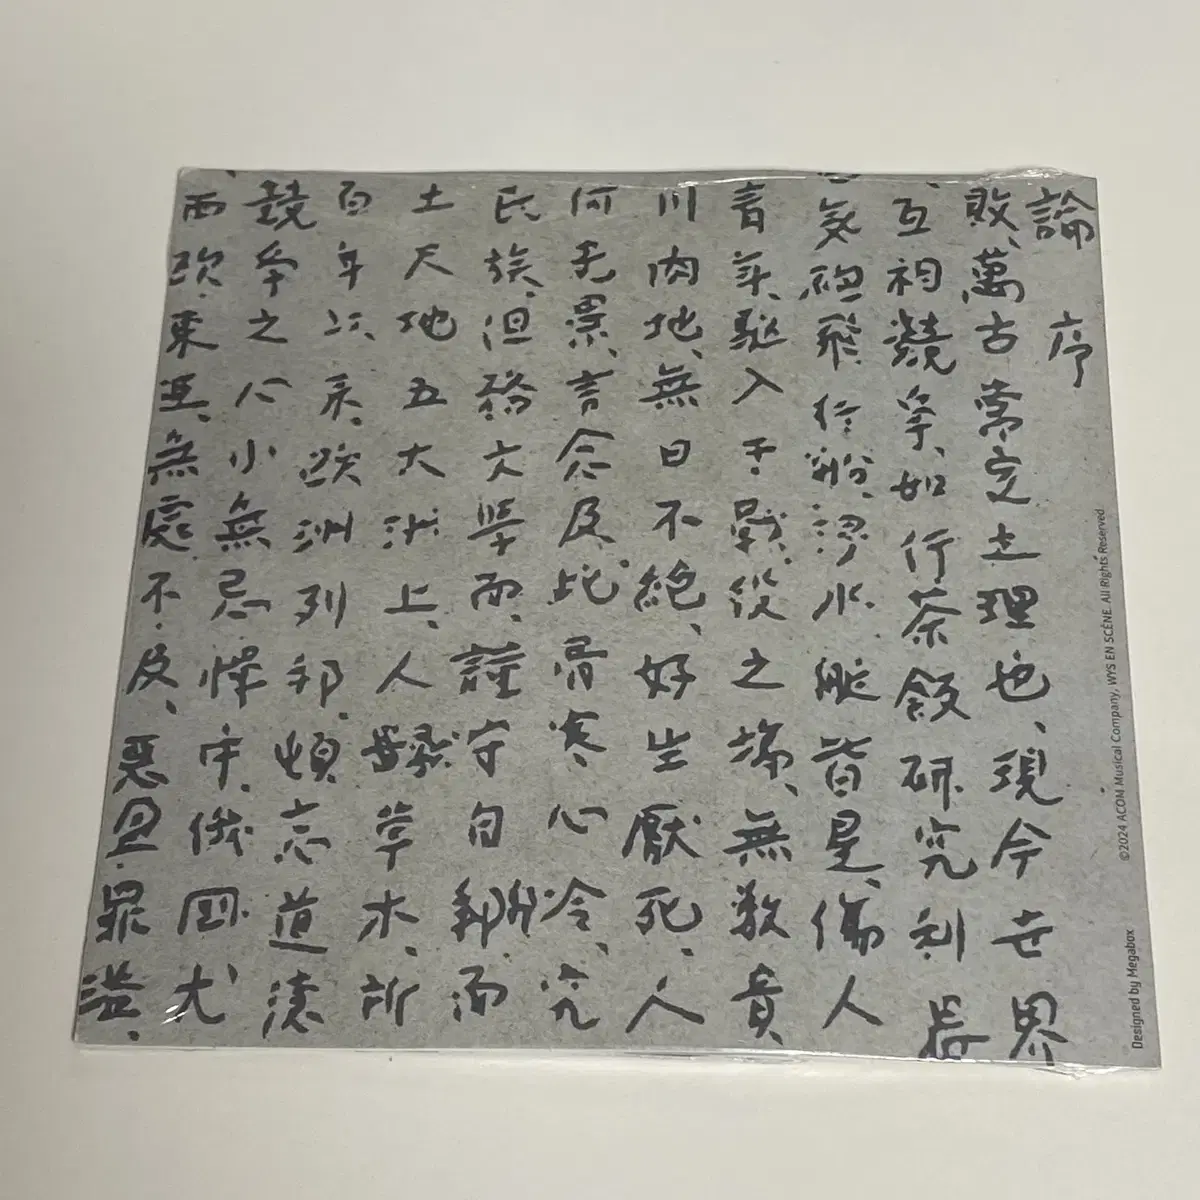 論序
敗、萬古常定之理也、現今世界
互相競爭、如行茶飯研究利器
氣砲飛行船、浸水艇皆是、傷人
青年、驅入于戰役之場、無數貴
川肉地、無日不絶、好生厭死、人
何光景、言念及此、骨寒心冷、究
民族、但務文學而、謹守自邦而
土尺地五大洲上、人獸草木、所
百年以来、欧洲列邦、頓忘道德
競争之心小無忌憚中、俄国尤
西欧、東亜、無處不及、惡盈、罪溢、
Designed by Megabox
©2024 ACOM Musical Company, WYS EN SCÈNE. All Rights Reserved